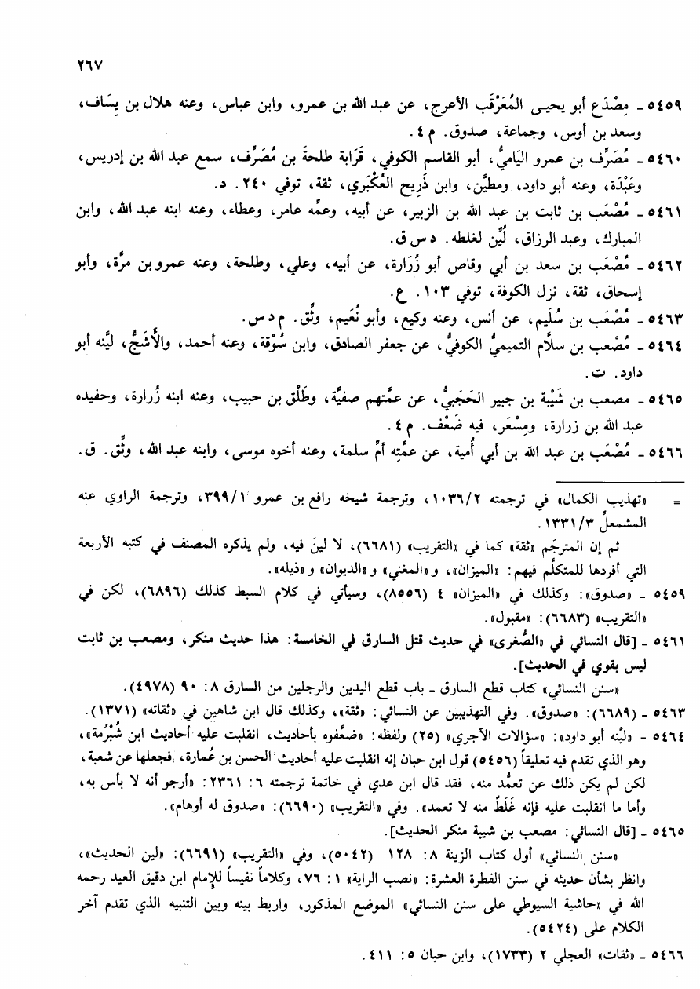 ٢٦٧
٥٤٥٩ ـ مِصْدَع أبو يحيى المُعَرْقَب الأعرج، عن عبد الله بن عمرو، وابن عباس، وعنه هلال بن يِسَاف،
وسعد بن أوس، وجماعة، صدوق. م ٤.
٥٤٦٠ ـ مُصَرِّف بن عمرو اليَاميُّ، أبو القاسم الكوفي، قَرَابة طلحةَ بن مُصَرِّف، سمع عبد الله بن إدريس،
وعَبْدَة، وعنه أبو داود، ومطيَّن، وابن ذَرِيح العُكْبَري، ثقة، توفي ٢٤٠. د.
٥٤٦١ ـ مُصْعَب بن ثابت بن عبد الله بن الزبير، عن أبيه، وعمِّه عامر، وعطاء، وعنه ابنه عبد الله، وابن
المبارك، وعبد الرزاق، لُيِّن لغلطه. د س ق.
٥٤٦٢ ـ مُصْعَب بن سعد بن أبي وقاص أبو زُرَارة، عن أبيه، وعلي، وطلحة، وعنه عمرو بن مرَّة، وأبو
إسحاق، ثقة، نزل الكوفة، توفي ١٠٣. ع.
٥٤٦٣ ـ مُصْعَب بن سُلَيم، عن أنس، وعنه وكيع، وأبو نُعَيم، وثِّق. م د س.
٥٤٦٤ ـ مُصْعَب بن سلاَّم التميميُّ الكوفيُّ، عن جعفر الصادق، وابن سُوْقة، وعنه أحمد، والأشَجُّ، ليَّنه أبو
داود. ت.
٥٤٦٥ ـ مصعب بن شَيْبة بن جبير الحَجَبيُّ، عن عمَّتهم صفيَّة، وطَلْق بن حبيب، وعنه ابنه زُرارة، وحفيده
عبد الله بن زرارة، ومِسْعَر، فيه ضَعْف. م ٤.
٥٤٦٦ ـ مُصْعَب بن عبد الله بن أبي أُمية، عن عمَّتِه أمِّ سلمة، وعنه أخوه موسى، وابنه عبد الله، وثِّق. ق.
= «تهذيب الكمال» في ترجمته ١٠٣٦/٢، وترجمة شيخه رافع بن عمرو ٣٩٩/١، وترجمة الراوي عنه
المشمعلِّ ١٣٣١/٣.
ثم إن المترجَم «ثقة» كما في «التقريب» (٦٦٨١)، لا لينَ فيه، ولم يذكره المصنف في كتبه الأربعة
التي أفردها للمتكلَّم فيهم: «الميزان»، و«المغني» و«الديوان» و«ذيله».
٥٤٥٩ ـ «صدوق»: وكذلك في «الميزان» ٤ (٨٥٥٦)، وسيأتي في كلام السبط كذلك (٦٨٩٦)، لكن في
«التقريب» (٦٦٨٣): «مقبول».
٥٤٦١ ـ [قال النسائي في «الصُّغرى» في حديث قتل السارق في الخامسة: هذا حديث منكر، ومصعب بن ثابت
ليس بقوي في الحديث].
«سنن النسائي» كتاب قطع السارق ـ باب قطع اليدين والرجلين من السارق ٨: ٩٠ (٤٩٧٨).
٥٤٦٣ ـ (٦٦٨٩): «صدوق». وفي التهذيبين عن النسائي: «ثقة»، وكذلك قال ابن شاهين في «ثقاته» (١٣٧١).
٥٤٦٤ ـ «ليَّنه أبو داود»: «سؤالات الآجري» (٢٥) ولفظه: «ضعَّفوه بأحاديث، انقلبت عليه أحاديث ابن شُبْرُمة»،
وهو الذي تقدم فيه تعليقاً (٥٤٥٦) قول ابن حبان إنه انقلبت عليه أحاديث الحسن بن عُمارة، فجعلها عن شعبة،
لكن لم يكن ذلك عن تعمُّد منه، فقد قال ابن عدي في خاتمة ترجمته ٦: ٢٣٦١: «أرجو أنه لا بأس به،
وأما ما انقلبت عليه فإنه غَلَطٌ منه لا تعمد». وفي «التقريب» (٦٦٩٠): «صدوق له أوهام».
٥٤٦٥ ـ [قال النسائي: مصعب بن شيبة منكر الحديث].
«سنن النسائي» أول كتاب الزينة ٨: ١٢٨ (٥٠٤٢)، وفي «التقريب» (٦٦٩١): «لين الحديث»،
وانظر بشأن حديثه في سنن الفطرة العشرة: «نصب الراية» ١: ٧٦، وكلاماً نفيساً للإمام ابن دقيق العيد رحمه
الله في «حاشية السيوطي على سنن النسائي» الموضع المذكور، واربط بينه وبين التنبيه الذي تقدم آخر
الكلام على (٥٤٢٤).
٥٤٦٦ ـ «ثقات» العجلي ٢ (١٧٣٣)، وابن حبان ٥: ٤١١.